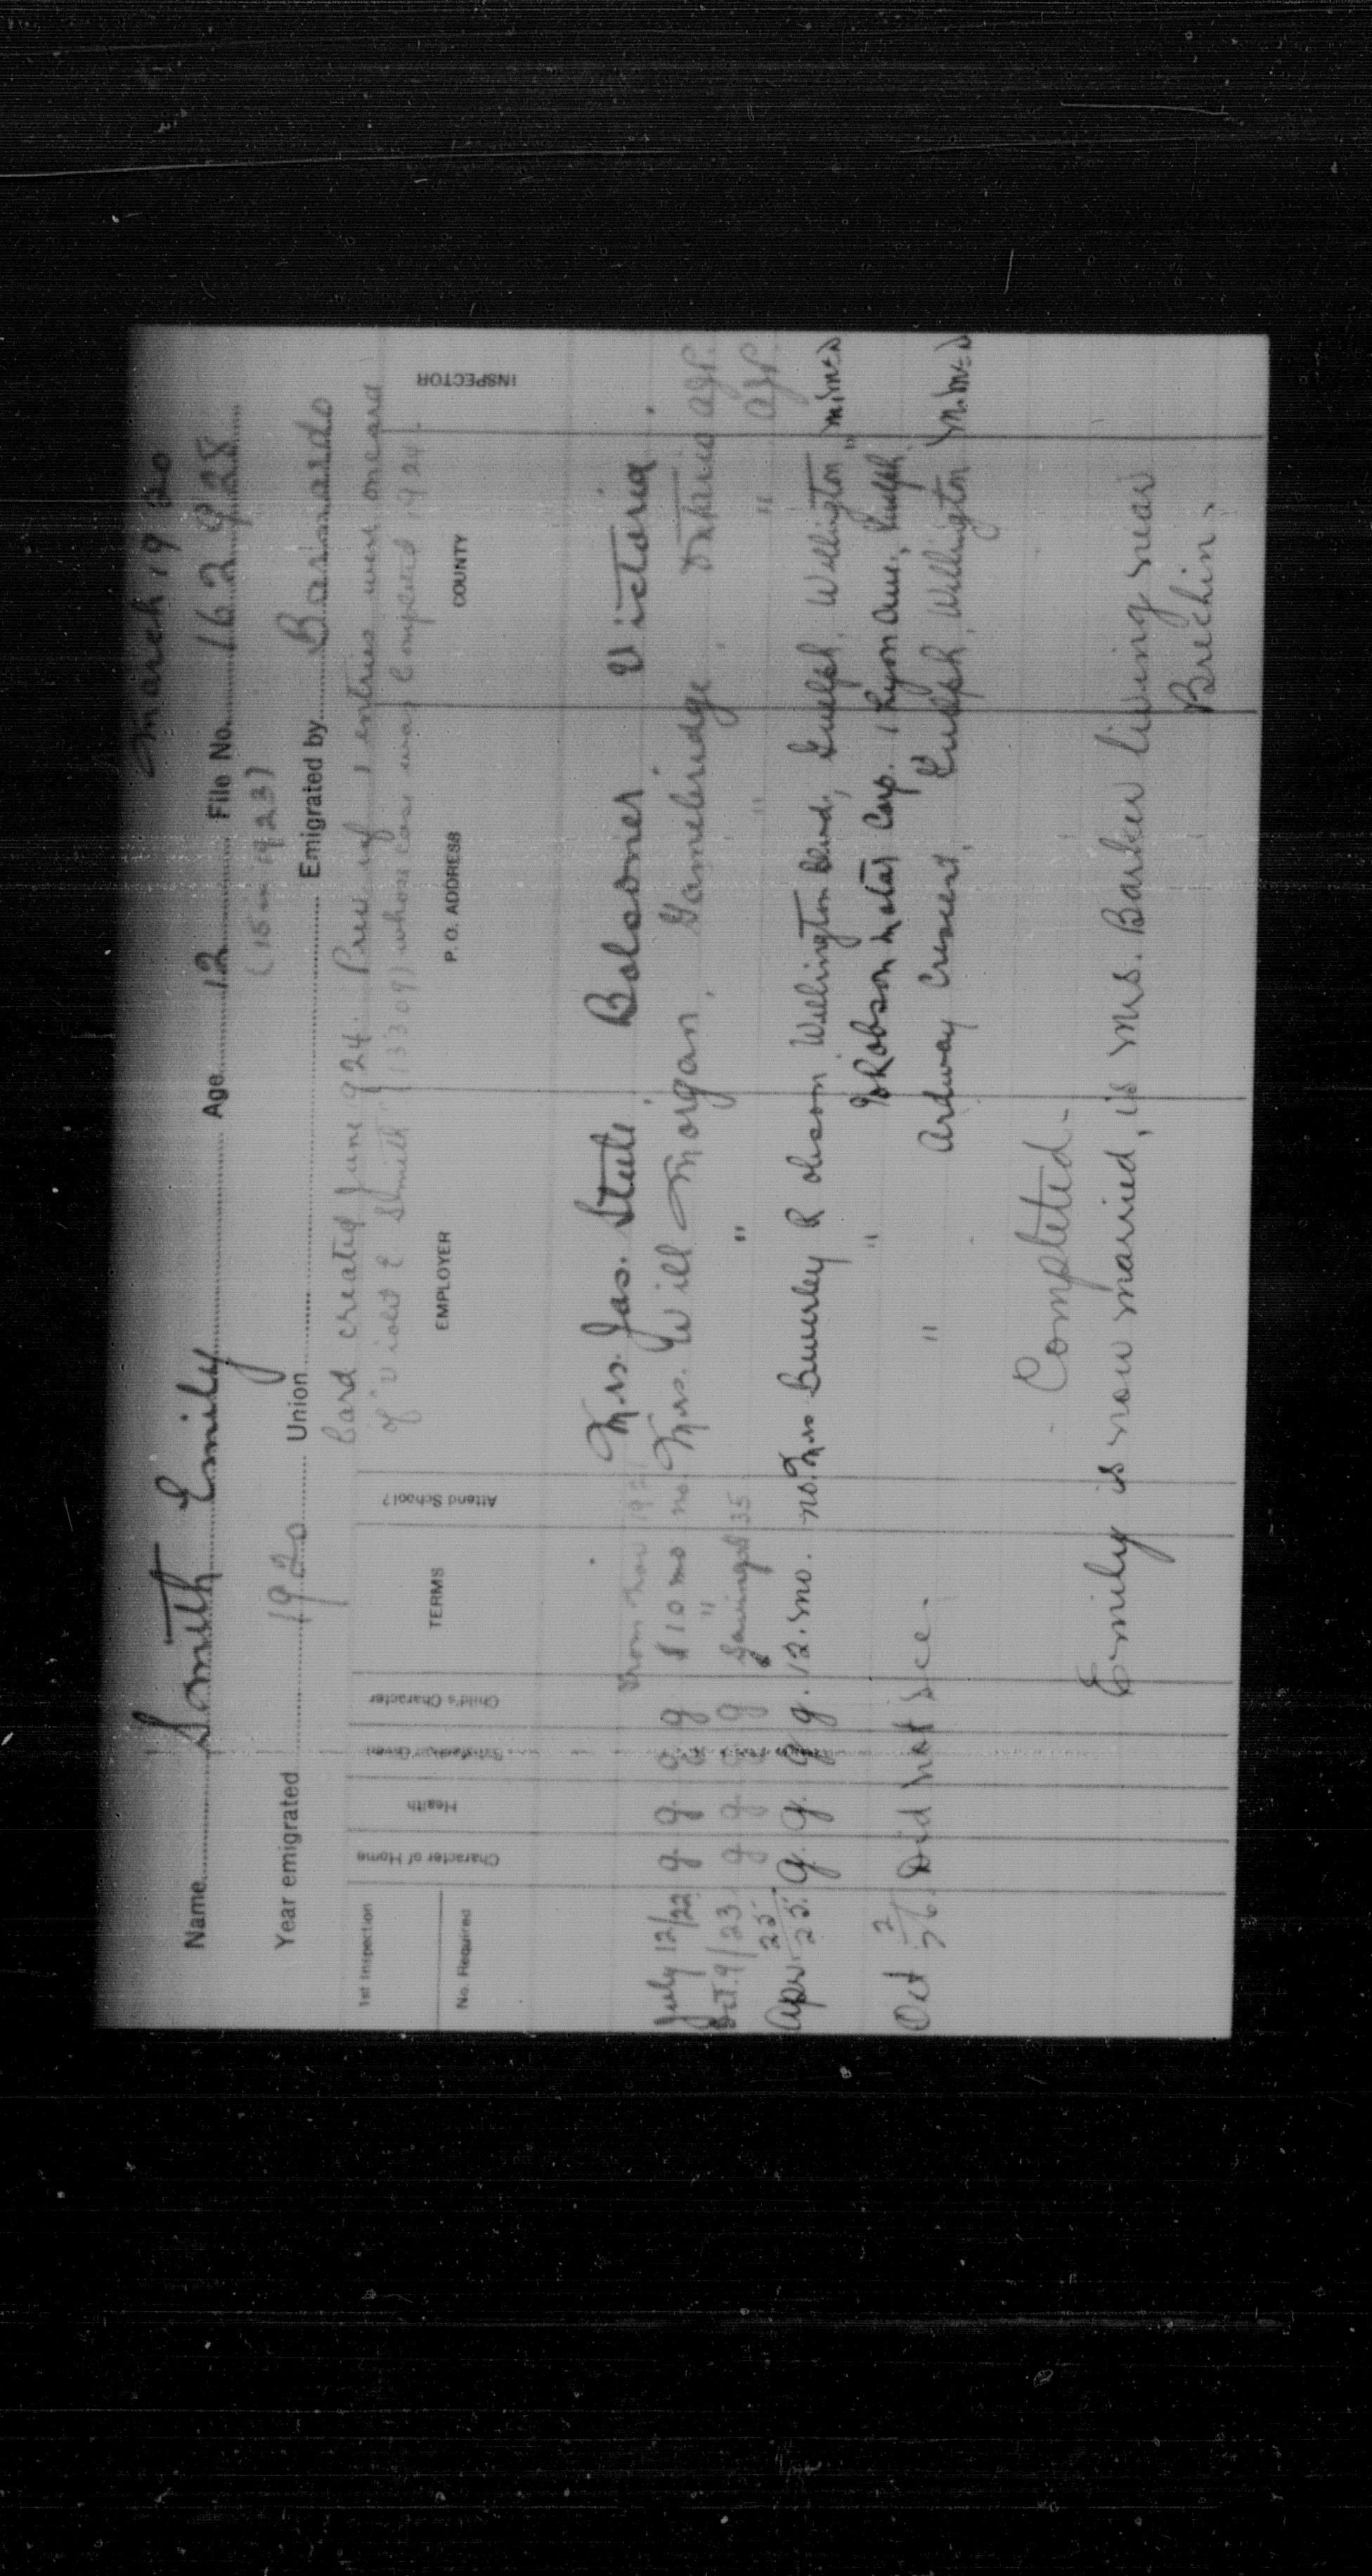 March 1920
Name Smith Emily Age 12 File No. 162928
(15 in 1923)
Year emigrated 1920 Union Emigrated by Barnardo
Card created June 1924. Previous entries were on card
of "Violet E Smith" (1309) whose case was completed 1924.
1st Inspection Character of Home Health Satisfaction Given Child's Character TERMS Attend School? EMPLOYER P. O. ADDRESS COUNTY INSPECTOR
No. Required
Mrs. Jas. Steele Bolsover Victoria
From Nov 1921
July 12/22 g g g g $10 mo no Mrs. Will Morgan, Gamebridge, Ontario
Oct. 9/23 g g g g " " " "
Savings $35
Apr 25/25. g. g. g g. 12. mo. no. Mrs Beverley Robson Wellington Blvd, Guelph, Wellington
" Robson Motar Corp. 1 Lyon Ave, Guelph "
Oct 2/26. Did not see. " Ardway Cresent, Guelph, Wellington
Completed-
Emily is now married, is Mrs. Barker living near
Brechin.